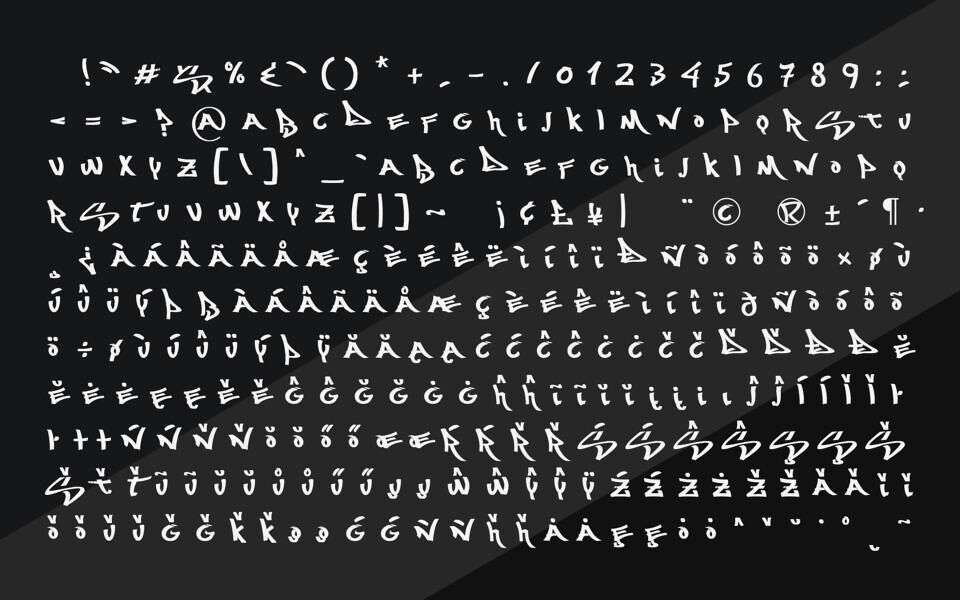 ! " # $ % & ' ( ) * + , - . / 0 1 2 3 4 5 6 7 8 9 : ;
< = > ? @ A B C D E F G h i J k l M N o P Q R S T U
V W X Y Z [ \ ] ^ _ ` A B C D E F G h i J k l M N o P Q
R S T U V W X Y Z [ | ] ~ ¡ ¢ £ ¥ | ¨ © ® ± ´ ¶ ·
¸ ¿ À Á Â Ã Ä Å Æ Ç È É Ê Ë ì í î ï Ð Ñ ò ó ô õ ö × ø Ù
Ú Û Ü Ý Þ ß À Á Â Ã Ä Å Æ Ç È É Ê Ë ì í î ï ð Ñ ò ó ô õ
ö ÷ ø Ù Ú Û Ü Ý Þ Ÿ Ă Ă Ą Ą Ć Ć Ĉ Ĉ Ċ Ċ Č Č Ď Ď Đ Đ Ĕ
Ĕ Ė Ė Ę Ę Ě Ě Ĝ Ĝ Ğ Ğ Ġ Ġ ĥ ĥ ĩ ĩ ĭ ĭ į į i ı Ĵ Ĵ Í Í Ľ Ľ ł
ł Ŧ Ŧ Ń Ń Ň Ň ŏ ŏ ő ő Œ Œ Ŕ Ŕ Ř Ř Ś Ś Ŝ Ŝ Ş Ş Š
Š Ť Ť Ũ Ũ Ŭ Ŭ Ů Ů Ű Ű Ų Ų Ŵ Ŵ Ŷ Ŷ Ÿ Ź Ź Ż Ż Ž Ž Ǎ Ǎ ǐ ǐ
ǒ ǒ Ǔ Ǔ Ǧ Ǧ Ǩ Ǩ ǫ ǫ Ǵ Ǵ Ǹ Ǹ ȟ ȟ Ȧ Ȧ Ȩ Ȩ ȯ ȯ ˆ ˇ ˘ ˙ ˚ ˛ ˜